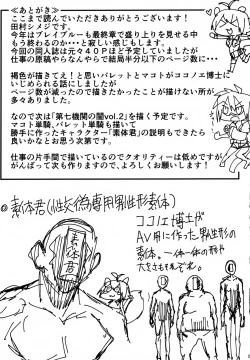 ≪あとがき≫
ここまで読んでいただきありがとうございます！
田村シメジです。
今年はブレイブルーも最終章で盛り上りを見せる中
もう終わるのか・・・と寂しい感じもします。
今回の同人誌は元々４０Ｐほど予定していましたが
仕事の原稿やらなんやらで結局半分以下のページ数に・・・
褐色が描きてえ！と思いバレットとマコトがココノエ博士に
いじめられる話にしましたが
ページ数が減ったので描きたかったことが描けない所が
多々ありました。
なので次は「第七機関の闇vol.2」を描く予定です。
マコト単騎、バレット単騎も描いて
勝手に作ったキャラクター「素体君」の説明もできたら
良いかなとお思う次第です。
仕事の片手間で描いているのでクオリティーは低めですが
できるだけ次も作りますので、よろしくお願いします！
素体君(性交偽専用男性形素体)
素体君
ココノエ博士が
AV用に作った男性形の
素体。一体一体の形や
大きさもそれぞれ。